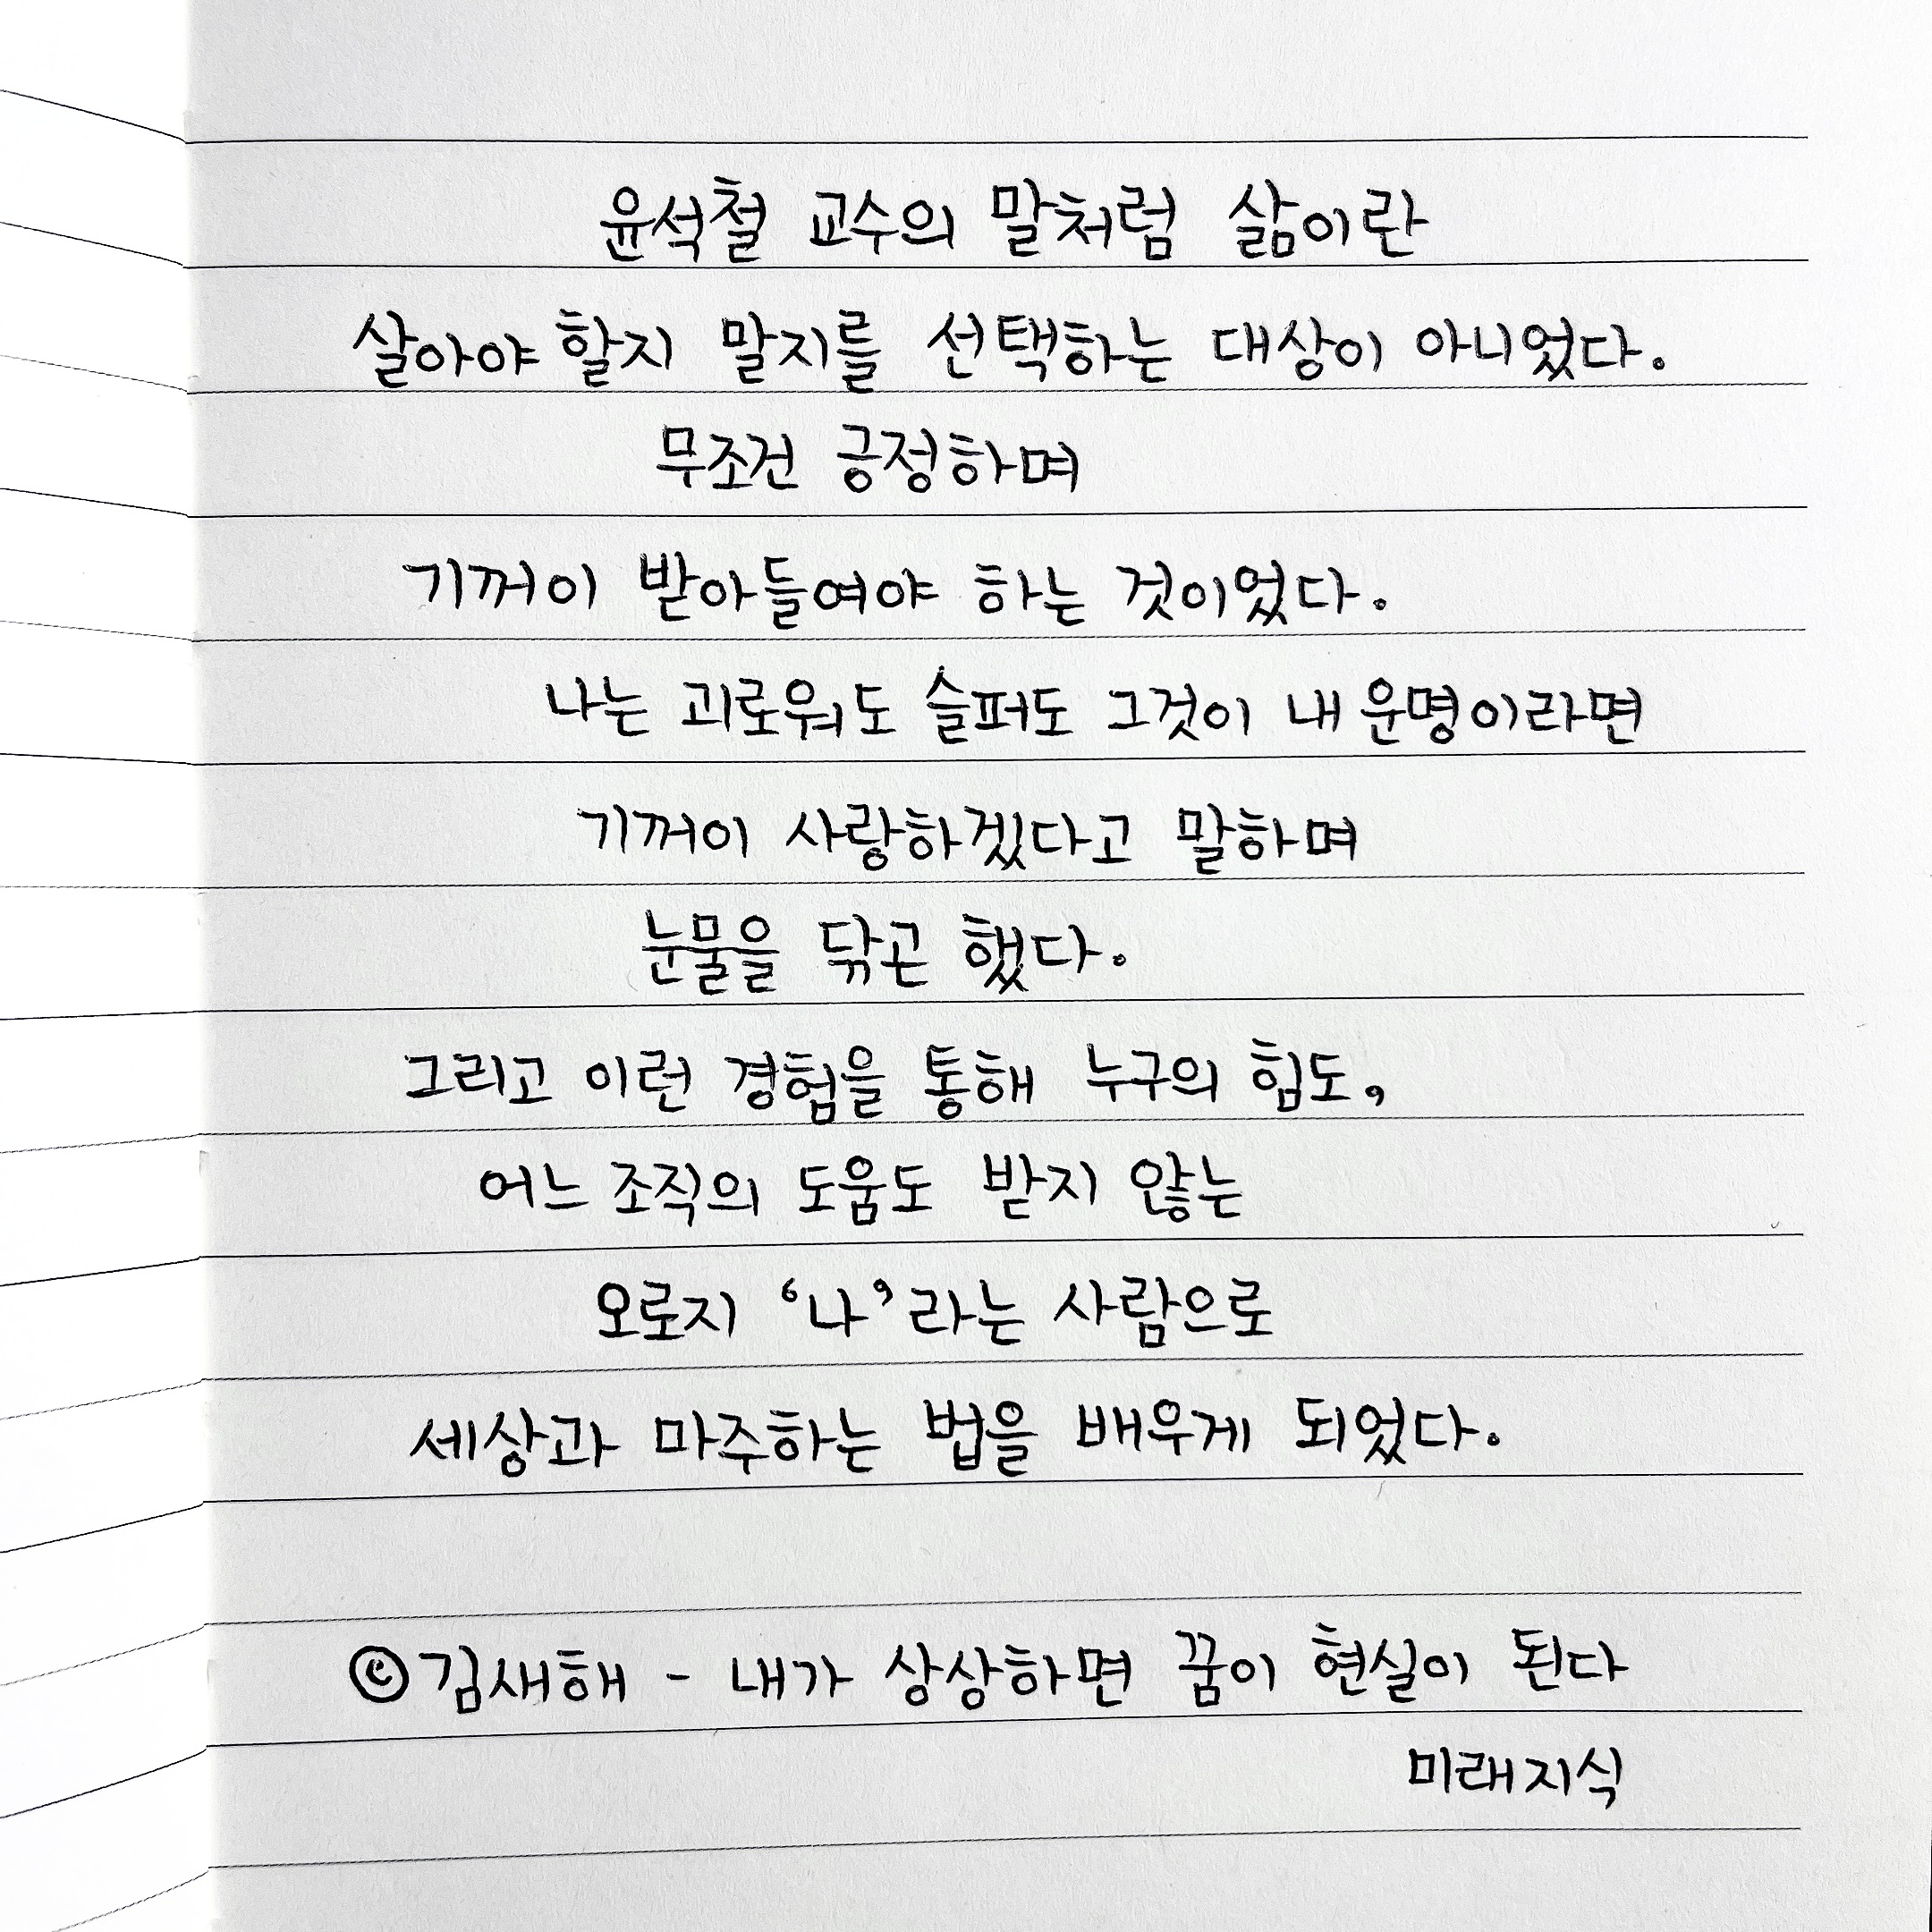 윤석철 교수의 말처럼 삶이란
살아야 할지 말지를 선택하는 대상이 아니었다.
무조건 긍정하며
기꺼이 받아들여야 하는 것이었다.
나는 괴로워도 슬퍼도 그것이 내 운명이라면
기꺼이 사랑하겠다고 말하며
눈물을 닦곤 했다.
그리고 이런 경험을 통해 누구의 힘도,
어느 조직의 도움도 받지 않는
오로지 ‘나’라는 사람으로
세상과 마주하는 법을 배우게 되었다.
©김새해 - 내가 상상하면 꿈이 현실이 된다
미래지식